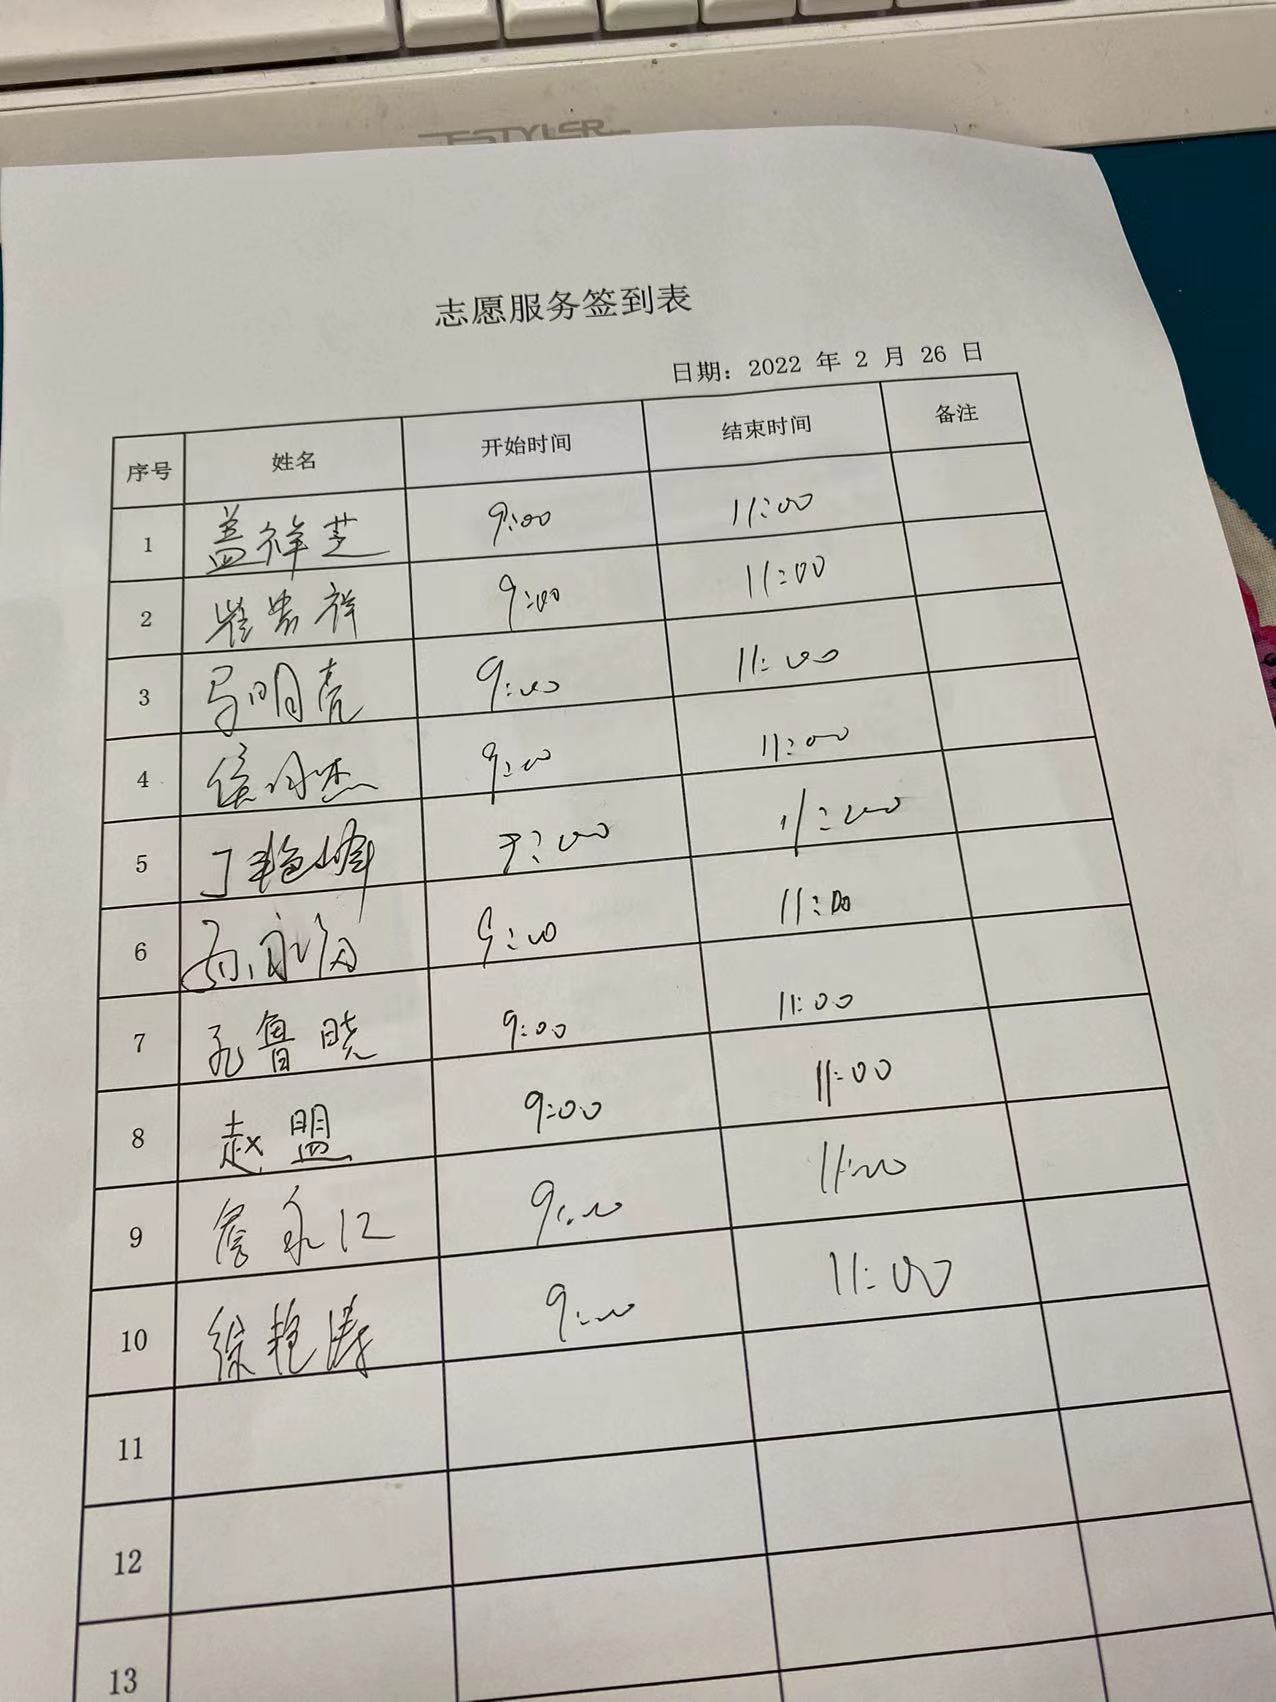 ESTYLER
志愿服务签到表
日期：2022 年 2 月 26 日
序号 姓名 开始时间 结束时间 备注
1 盖祥芝 9:00 11:00
2 崔贵祥 9:00 11:00
3 马明亮 9:00 11:00
4 侯明杰 9:00 11:00
5 丁艳峰 9:00 11:00
6 9:00 11:00
7 孔鲁晓 9:00 11:00
8 赵盟 9:00 11:00
9 詹永江 9:00 11:00
10 徐艳涛 9:00 11:00
11
12
13